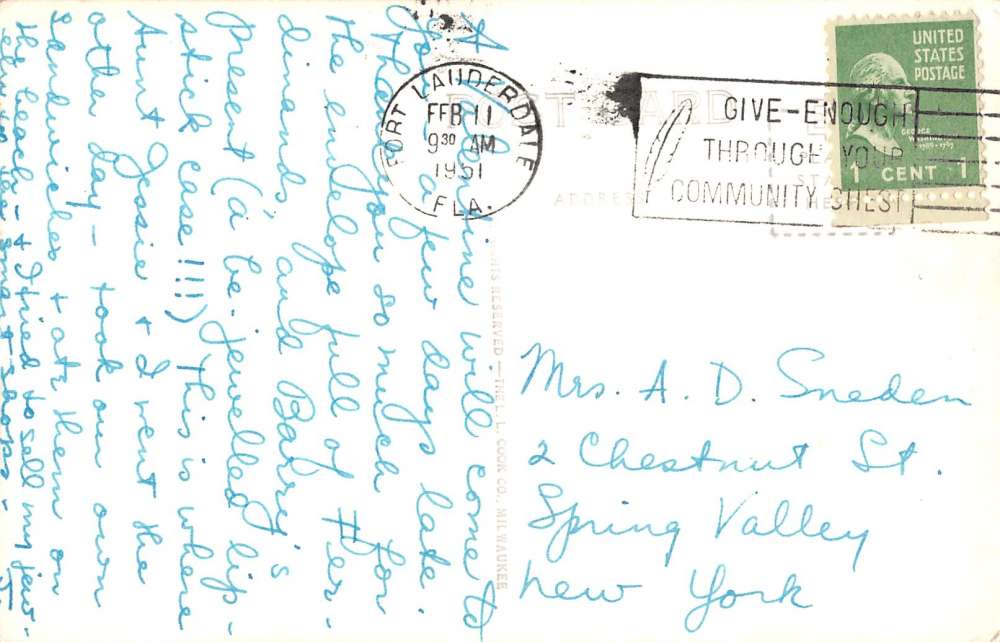 A Valentine will come to
you a few days late.
Thank you so much for
the envelope full of Fer-
dinands, and Barry's
present (a be-jewelled lip-
stick case !!!) This is where
Aunt Jessie + I went the
other day – took our own
sandwiches + ate them on
the beach – + I tried to sell my jew-
elry to the smart shops.
J.
POST CARD
ADDRESS
HTS RESERVED — THE L. L. COOK CO., MILWAUKEE
FORT LAUDERDALE
FEB 11
9 30 AM
1951
FLA.
GIVE-ENOUGH
THROUGH YOUR
COMMUNITY CHEST
UNITED
STATES
POSTAGE
GEORGE
WASHINGTON
1789-1797
1 CENT 1
HERE
Mrs. A. D. Sneden
2 Chestnut St.
Spring Valley
New York